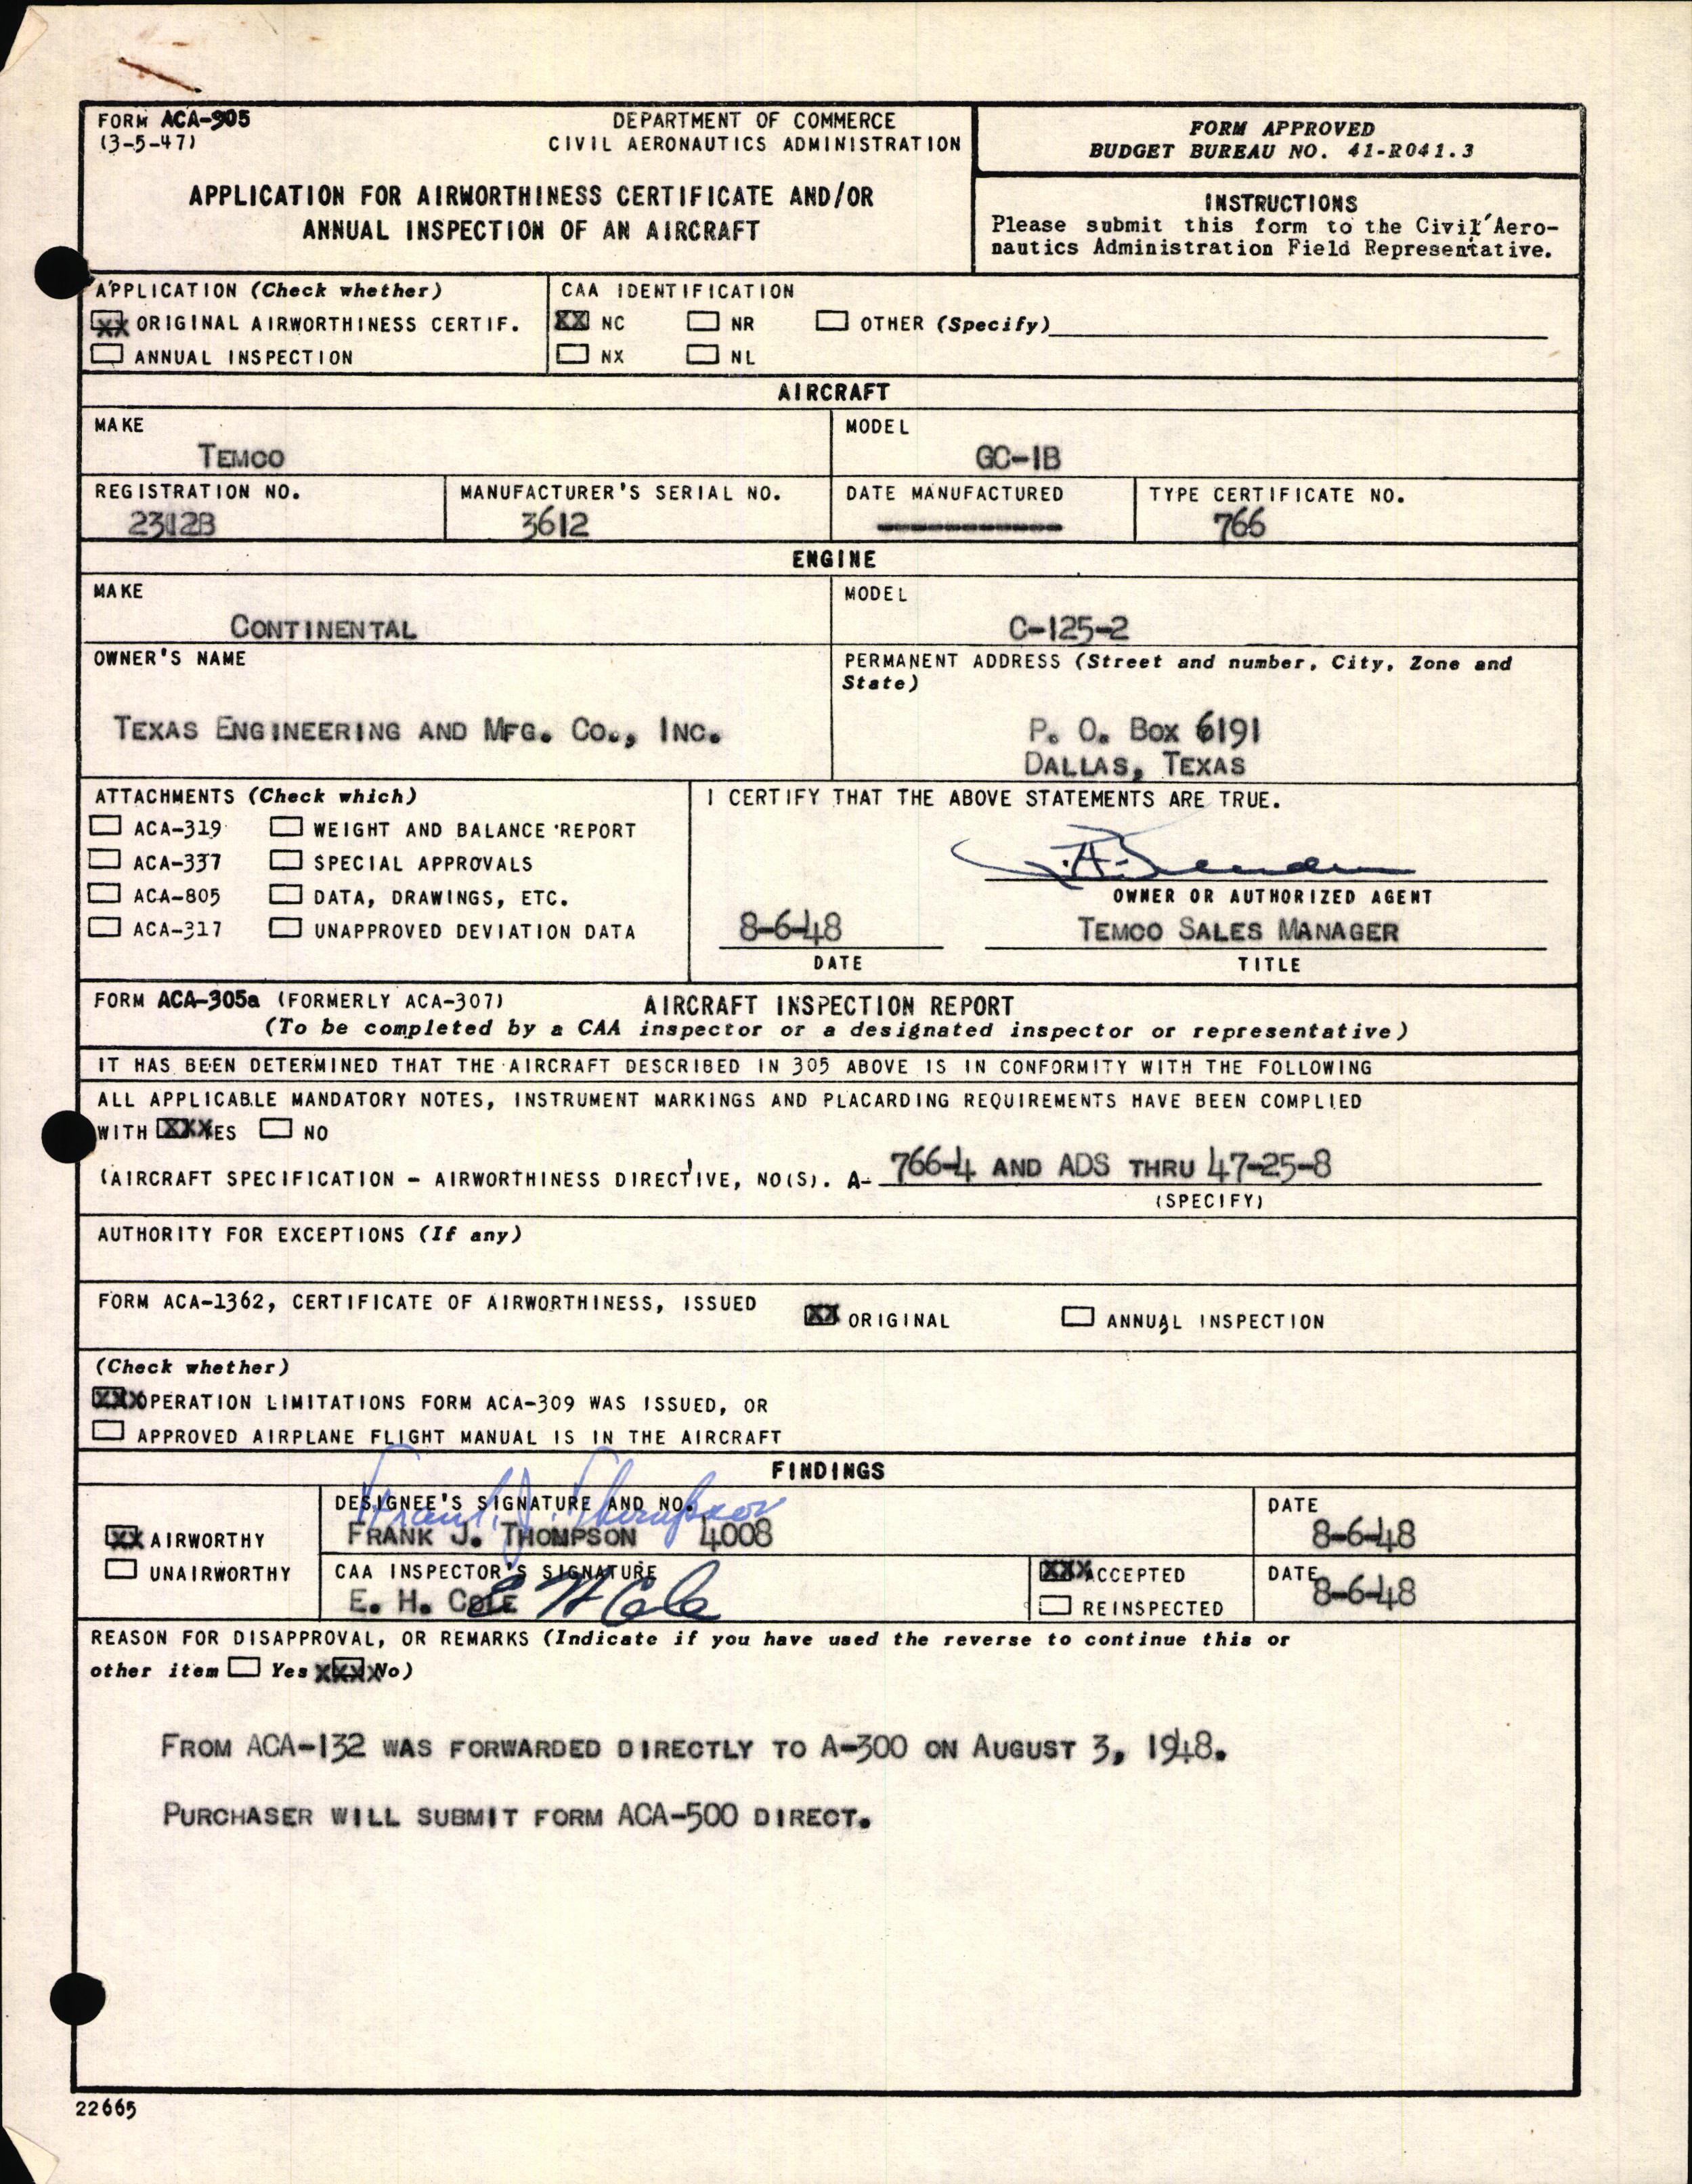 FORM ACA-305
(3-5-47)
DEPARTMENT OF COMMERCE
CIVIL AERONAUTICS ADMINISTRATION
APPLICATION FOR AIRWORTHINESS CERTIFICATE AND/OR
ANNUAL INSPECTION OF AN AIRCRAFT
FORM APPROVED
BUDGET BUREAU NO. 41-R041.3
INSTRUCTIONS
Please submit this form to the Civil Aero-
nautics Administration Field Representative.
APPLICATION (Check whether)
XX ORIGINAL AIRWORTHINESS CERTIF.
ANNUAL INSPECTION
CAA IDENTIFICATION
XX NC NR OTHER (Specify)
NX NL
AIRCRAFT
MAKE
TEMCO
MODEL
GC-1B
REGISTRATION NO.
2312B
MANUFACTURER'S SERIAL NO.
3612
DATE MANUFACTURED
------------
TYPE CERTIFICATE NO.
766
ENGINE
MAKE
CONTINENTAL
MODEL
C-125-2
OWNER'S NAME
TEXAS ENGINEERING AND MFG. CO., INC.
PERMANENT ADDRESS (Street and number, City, Zone and
State)
P. O. BOX 6191
DALLAS, TEXAS
ATTACHMENTS (Check which)
ACA-319 WEIGHT AND BALANCE REPORT
ACA-337 SPECIAL APPROVALS
ACA-805 DATA, DRAWINGS, ETC.
ACA-317 UNAPPROVED DEVIATION DATA
I CERTIFY THAT THE ABOVE STATEMENTS ARE TRUE.
OWNER OR AUTHORIZED AGENT
8-6-48
DATE
TEMCO SALES MANAGER
TITLE
FORM ACA-305a (FORMERLY ACA-307)
AIRCRAFT INSPECTION REPORT
(To be completed by a CAA inspector or a designated inspector or representative)
IT HAS BEEN DETERMINED THAT THE AIRCRAFT DESCRIBED IN 305 ABOVE IS IN CONFORMITY WITH THE FOLLOWING
ALL APPLICABLE MANDATORY NOTES, INSTRUMENT MARKINGS AND PLACARDING REQUIREMENTS HAVE BEEN COMPLIED
WITH XXX YES NO
(AIRCRAFT SPECIFICATION - AIRWORTHINESS DIRECTIVE, NO(S). A- 766-4 AND ADS THRU 47-25-8
(SPECIFY)
AUTHORITY FOR EXCEPTIONS (If any)
FORM ACA-1362, CERTIFICATE OF AIRWORTHINESS, ISSUED XX ORIGINAL ANNUAL INSPECTION
(Check whether)
XXX OPERATION LIMITATIONS FORM ACA-309 WAS ISSUED, OR
APPROVED AIRPLANE FLIGHT MANUAL IS IN THE AIRCRAFT
FINDINGS
XX AIRWORTHY
UNAIRWORTHY
DESIGNEE'S SIGNATURE AND NO.
Frank J. Thompson
FRANK J. THOMPSON 4008
DATE
8-6-48
CAA INSPECTOR'S SIGNATURE
E. H. COLE E H Cole
XXX ACCEPTED
REINSPECTED
DATE
8-6-48
REASON FOR DISAPPROVAL, OR REMARKS (Indicate if you have used the reverse to continue this or
other item Yes XXXX No)
FROM ACA-132 WAS FORWARDED DIRECTLY TO A-300 ON AUGUST 3, 1948.
PURCHASER WILL SUBMIT FORM ACA-500 DIRECT.
22665